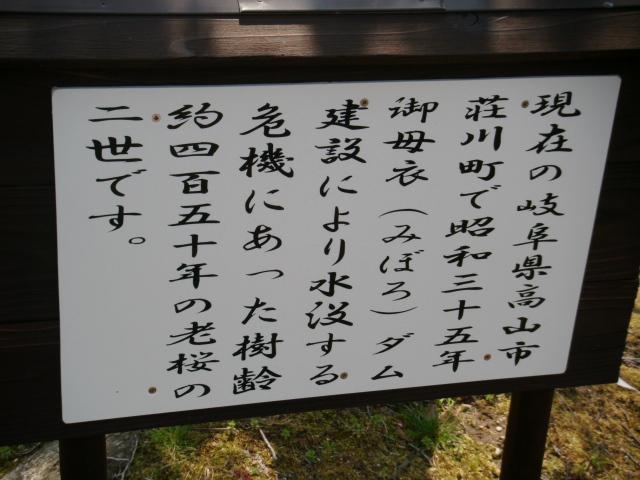 現在の岐阜県高山市
荘川町で昭和三十五年
御母衣（みぼろ）ダム
建設により水没する
危機にあった樹齢
約四百五十年の老桜の
二世です。